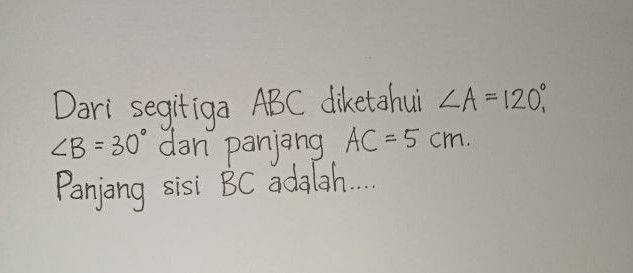 Dari segitiga ABC diketahui ∠A = 120°,
∠B = 30° dan panjang AC = 5 cm.
Panjang sisi BC adalah....